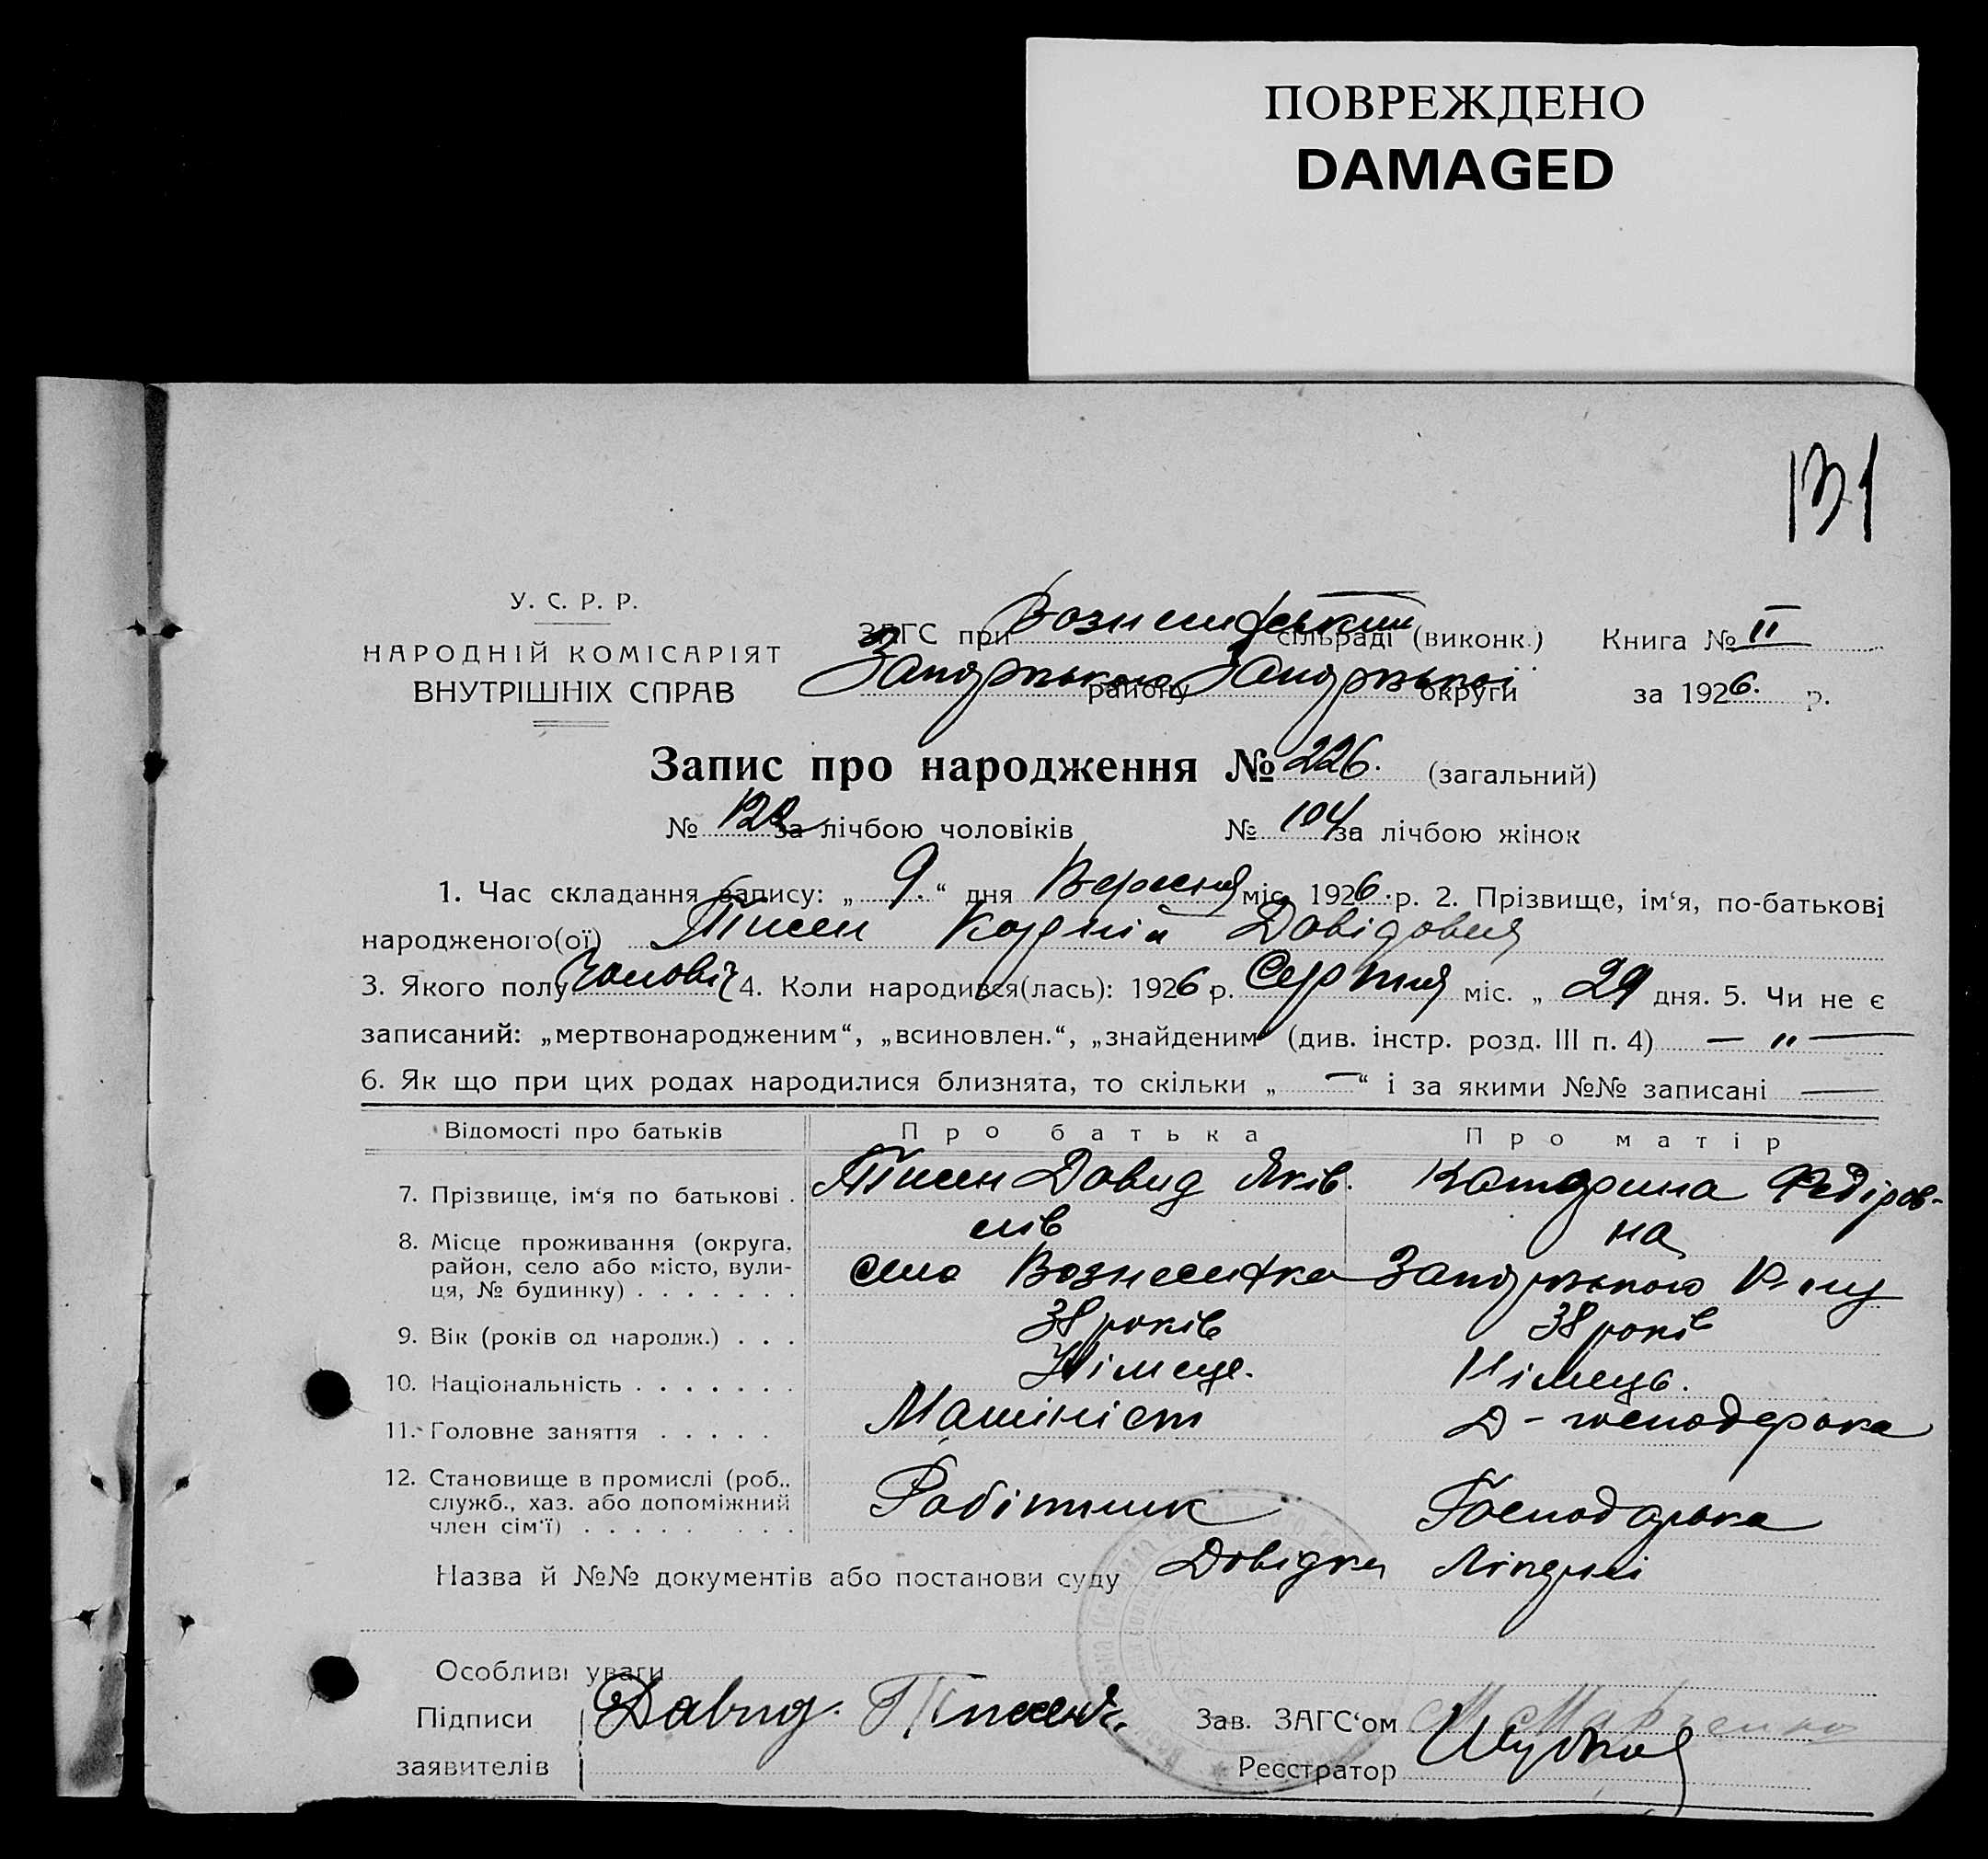 ПОВРЕЖДЕНО
DAMAGED
131
У. С. Р. Р.
НАРОДНІЙ КОМІСАРІЯТ
ВНУТРІШНІХ СПРАВ
ЗАГС при Вознесенський сільраді (виконк.) Книга № II
Запорізького району Запорізької округи за 1926. р.
Запис про народження № 226. (загальний)
№ 122 за лічбою чоловіків № 104 за лічбою жінок
1. Час складання запису: „ 9. “ дня Вересня міс. 1926 р. 2. Прізвище, ім‘я, по-батькові
народженого(ої) Тисен Корній Довідович
3. Якого полу чоловіч 4. Коли народився(лась): 1926 р. Серпня міс. „ 29 дня. 5. Чи не є
записаний: „мертвонародженим“, „всиновлен.“, „знайденим“ (див. інстр. розд. III п. 4) — „ —
6. Як що при цих родах народилися близнята, то скільки „ — “ і за якими №№ записані —
Відомості про батьків Про батька Про матір
7. Прізвище, ім‘я по батькові . Тисен Довид Яків. Катерина Федіров-
на
8. Місце проживання (округа,
район, село або місто, вули-
ця, № будинку) . . . . . . . село Вознесенка Запорізького
9. Вік (років од народж.) . . . 38 років 38 років
10. Національність . . . . . . . Німець. Німець.
11. Головне заняття . . . . . Машініст Д-господарка
12. Становище в промислі (роб.,
служб., хаз. або допоміжний
член сім‘ї) . . . . . . . . Робітник Господарка
Назва й №№ документів або постанови суду Довідка Лікарні
Особливі уваги
Підписи Давид. Тиссен
заявителів
Зав. ЗАГС‘ом
Реєстратор